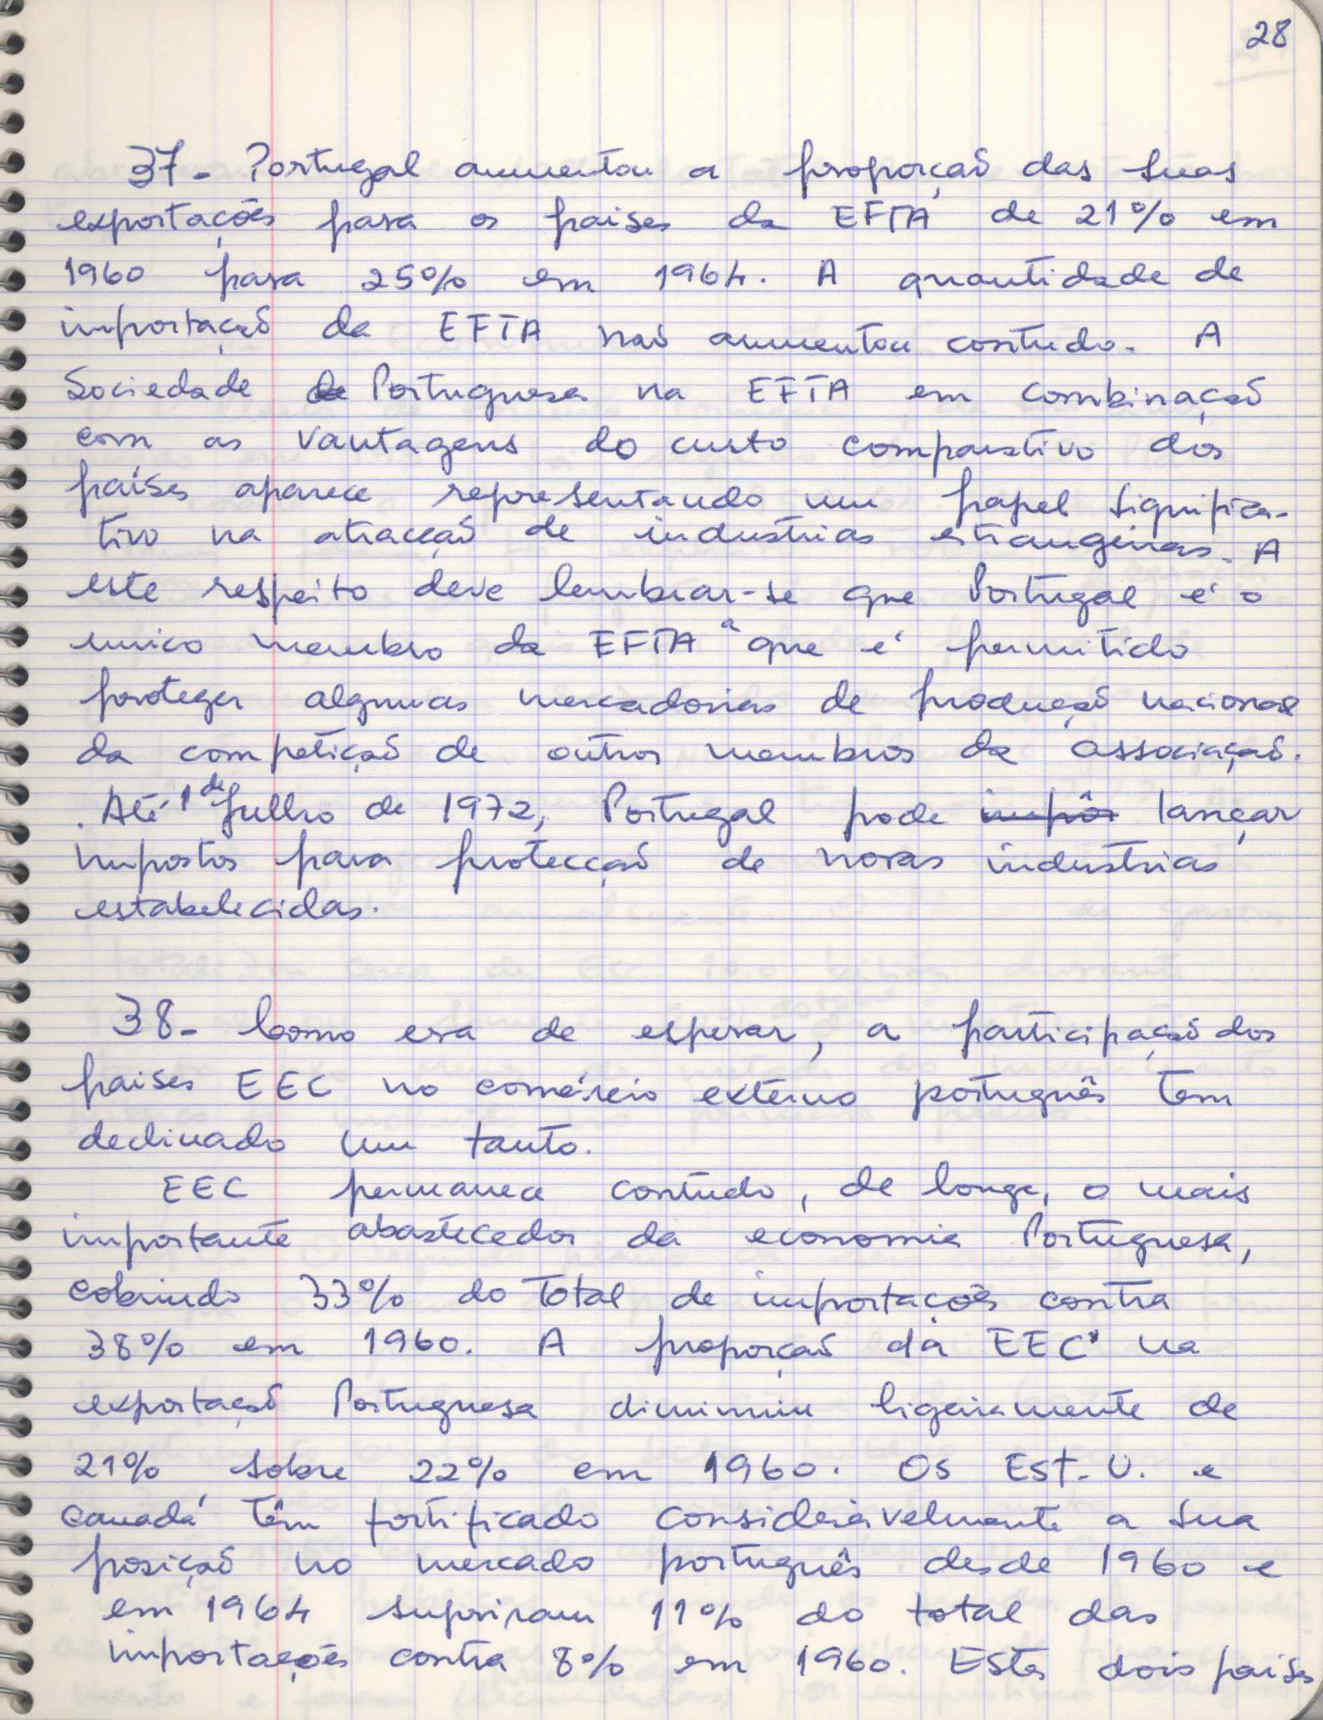 28
37- Portugal aumentou a proporção das suas
exportações para os paises da EFTA de 21% em
1960 para 25% em 1964. A quantidade de
importação da EFTA não aumentou contudo. A
Sociedade de Portuguesa na EFTA em combinação
com as vantagens do custo comparativo dos
países aparece representando um papel significa-
tivo na atracção de industrias estrangeiras. A
este respeito deve lembrar-se que Portugal é o
unico membro da EFTA a que é permitido
proteger algumas mercadorias de produção nacional
da competição de outros membros da associação.
. Até 1 de Julho de 1972, Portugal pode impôr lançar
impostos para protecção de novas industrias
estabelecidas.
38- Como era de esperar, a participação dos
paises EEC no comércio externo português tem
declinado um tanto.
EEC permanece contudo, de longe, o mais
importante abastecedor da economia Portuguesa,
cobrindo 33% do total de importações contra
38% em 1960. A proporção da EEC na
exportação Portuguesa diminuiu ligeiramente de
21% sobre 22% em 1960. Os Est. U. e
Canadá têm fortificado consideràvelmente a sua
posição no mercado português desde 1960 e
em 1964 supriram 11% do total das
importações contra 8% em 1960. Estes dois paises